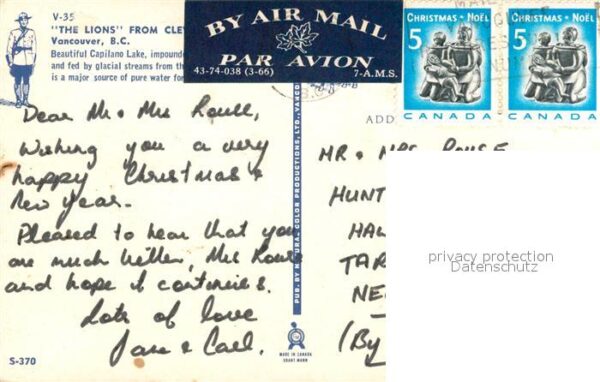 V-35
"THE LIONS" FROM CLE
Vancouver, B.C.
Beautiful Capilano Lake, impound
and fed by glacial streams from th
is a major source of pure water for
BY AIR MAIL
PAR AVION
43-74-038 (3-66)
7-A.M.S.
CHRISTMAS • NOËL
5
CANADA
CHRISTMAS • NOËL
5
CANADA
ADD
Dear Mr & Mrs Rouse,
Wishing you a very
happy Christmas &
New year.
Pleased to hear that you
are much better, Mrs Rouse
and hope it continues.
Lots of love
Jane & Carl.
PUB. BY NATURAL COLOR PRODUCTIONS, LTD., VANCOU
MR & MRS ROUSE
HUNT
HA
TAR
NE
(By
privacy protection
Datenschutz
MADE IN CANADA
GRANT MANN
S-370